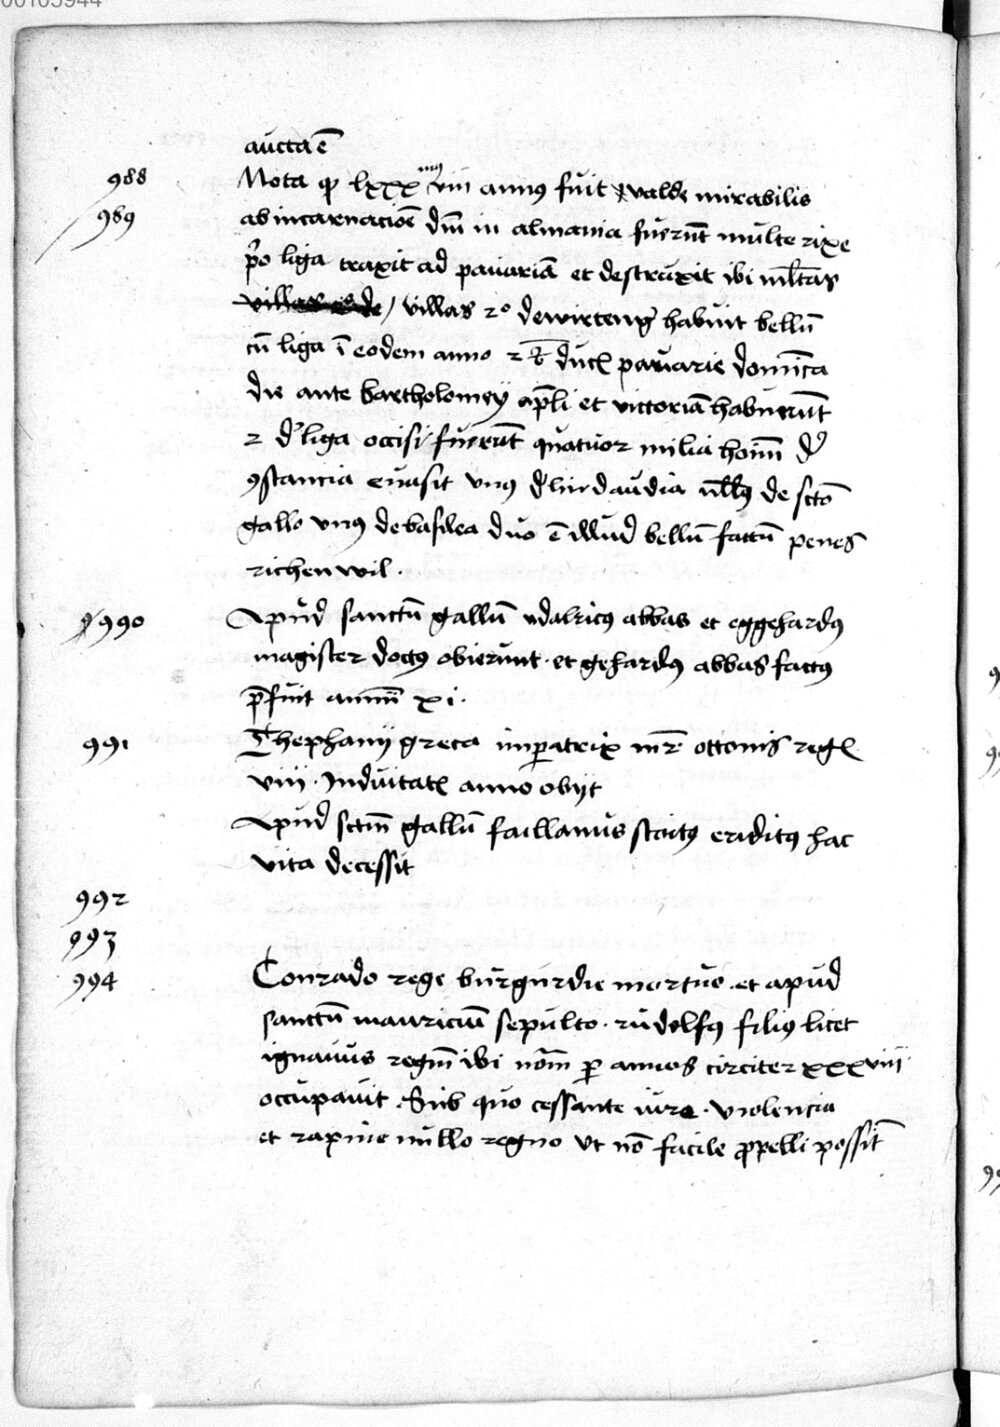 00103944
aucta ē
988 Nota qͦ lxxx viii annus fuit valde mirabilis
989 ab incarnacioē dm̄ in almania fuerūt multe rixe
p̄o liga traxit ad pauariā et destruxit ibi ml̄tas
villas de / villas 2º de wirteng' habuit bellū
cū liga ī eodem anno 2 duc pauarie domīca
die ante bartholomeÿ ap̄li et victoriā habuerūt
2 d' liga occisi fuerūt quatuor milia homī d'
ꝯstancia euasit vnꝰ d' lindaudia nll̄ꝰ de sctō
gallo vnꝰ de basilea duo ē illud bellū factū penes
richenwil .
990 Apud sanctū gallū vdalricꝰ abbas et eggehardꝰ
magister doctꝰ obierunt . et gehardꝰ abbas factꝰ
p̄fuit annīs xi .
991 Thephanÿ greca imꝑatrix mr̄ ottonis reg
viii . Indvitat anno obÿt
Apud sctm̄ gallū faillanus scoitꝰ eriditꝰ hac
vita decessit
992
993
994 Conrado rege burgundie mortuo . et apud
sanctū mauriciū sepulto . rudolfꝰ filiꝰ licet
ignauus regnū ibi nōm ꝑ annos circiter xxxviii
occupauit . Sub quo cessante iure . violencia
et rapine nullo regno vt nō facile ꝓpelli possit